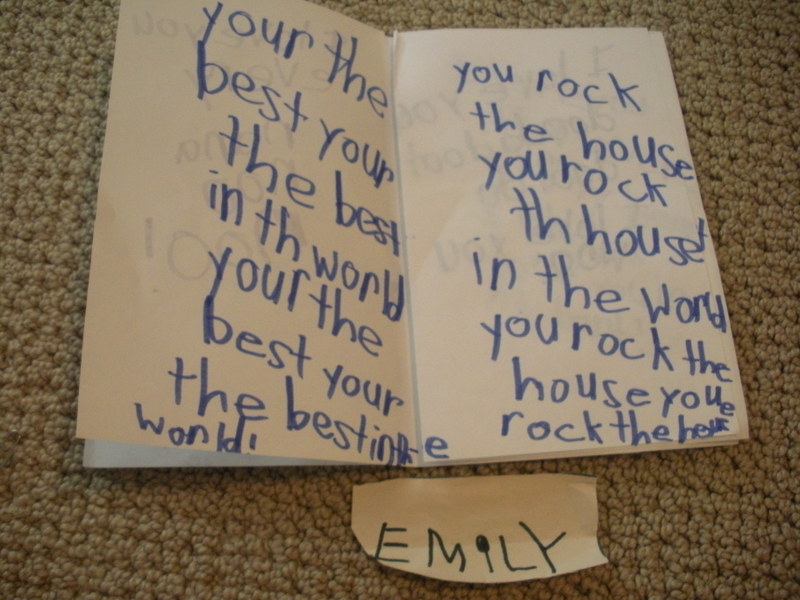 your the
best your
the best
in th world
your the
best your
the best in the
world!
you rock
the house
you rock
th house
in the world
you rock the
house you
rock the
EMiLY